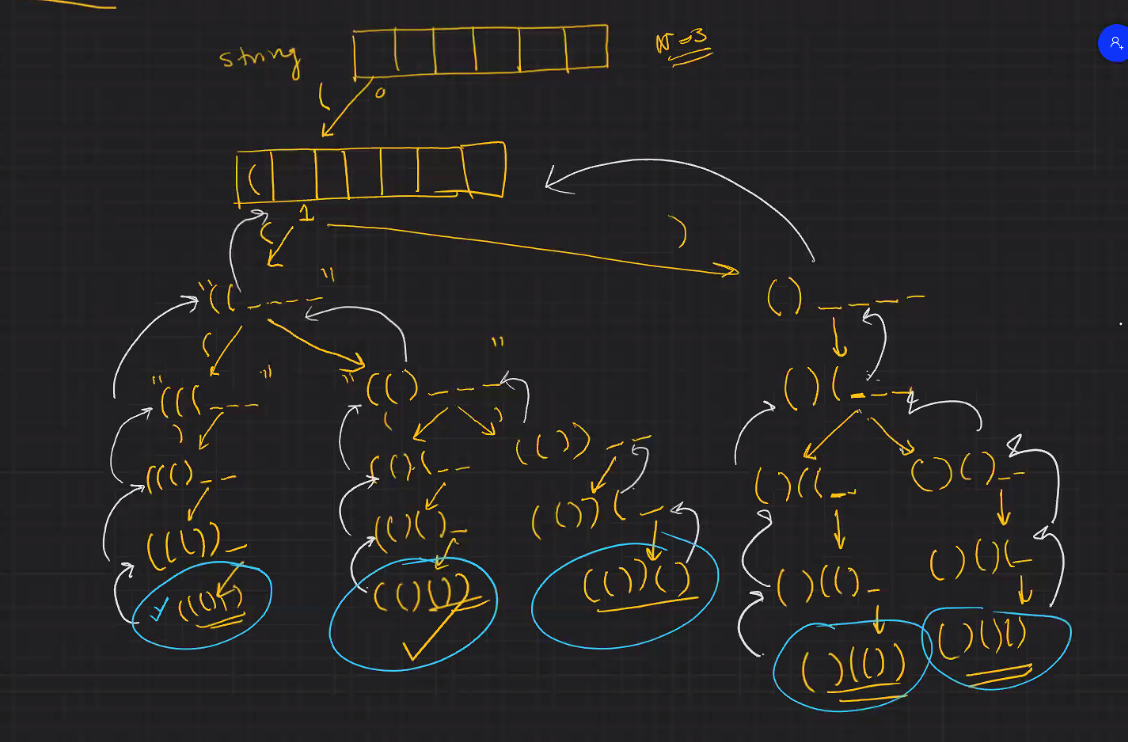 string N=3
( 0
(
( 1 )
"(( _ _ _ _ " ( ) _ _ _ _
(
"((( _ _ _ " "(() _ _ _ " ()( _ _ _
) ( )
((() _ _ (()( _ _ (()) _ _ ()(( _ _ ()() _ _
((()) _ (()() _ (())( _ ()(() _ ()()( _
((())) (()()) (())() ()(()) ()()()